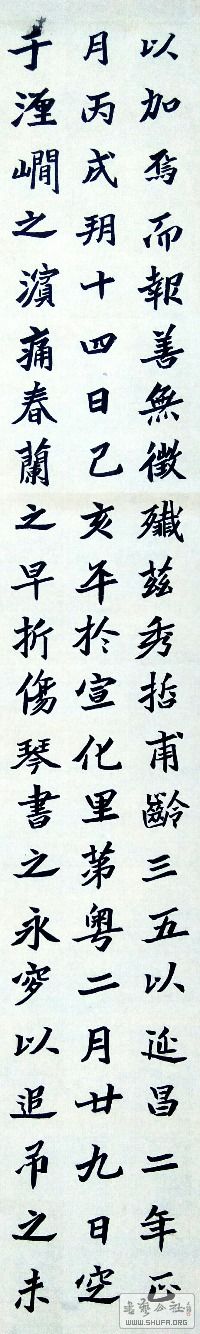 以加焉而報善無徵殲茲秀哲甫齡三五以延昌二年正
月丙戌朔十四日己亥卒於宣化里第粵二月廿九日窆
于湮㵎之濱痛春蘭之早折傷琴書之永穸以追吊之未
書藝公社
WWW.SHUFA.ORG